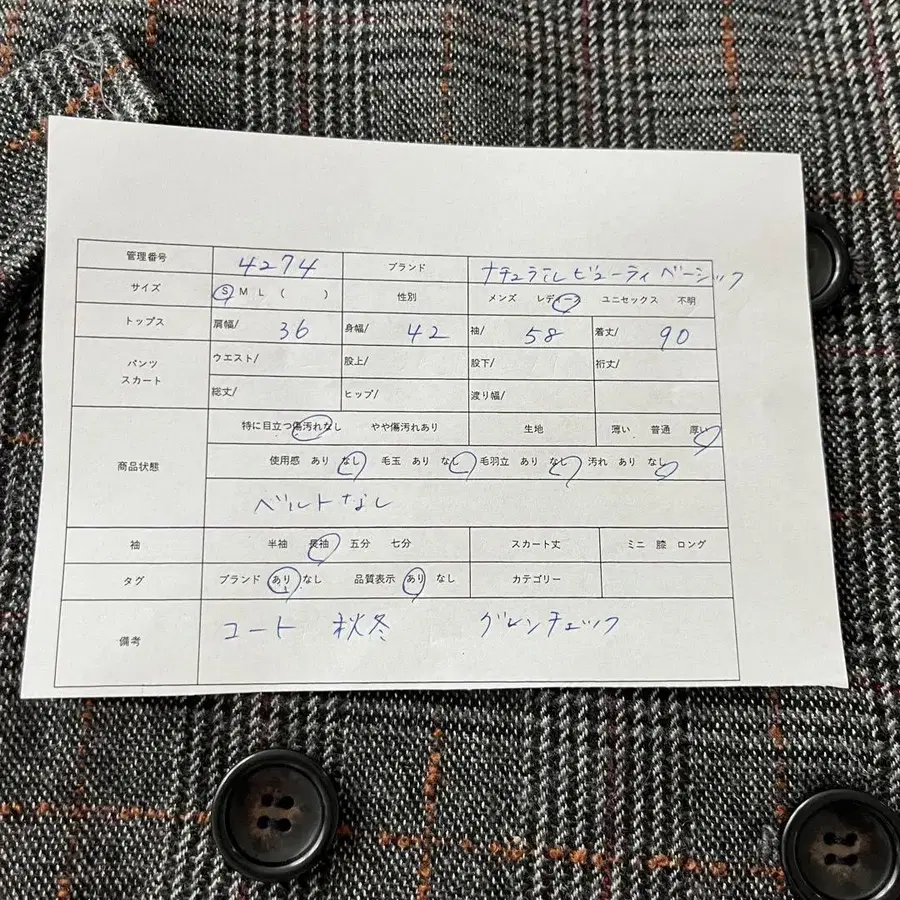 管理番号 4274 ブランド ナチュラルビューティベーシック
サイズ S M L ( ) 性別 メンズ レディース ユニセックス 不明
トップス 肩幅/ 36 身幅/ 42 袖/ 58 着丈/ 90
パンツ スカート ウエスト/ 股上/ 股下/ 裄丈/
総丈/ ヒップ/ 渡り幅/
商品状態 特に目立つ傷汚れなし やや傷汚れあり 生地 薄い 普通 厚い
使用感 あり なし 毛玉 あり なし 毛羽立 あり なし 汚れ あり なし
ベルトなし
袖 半袖 長袖 五分 七分 スカート丈 ミニ 膝 ロング
タグ ブランド あり なし 品質表示 あり なし カテゴリー
備考 コート 秋冬 グレンチェック